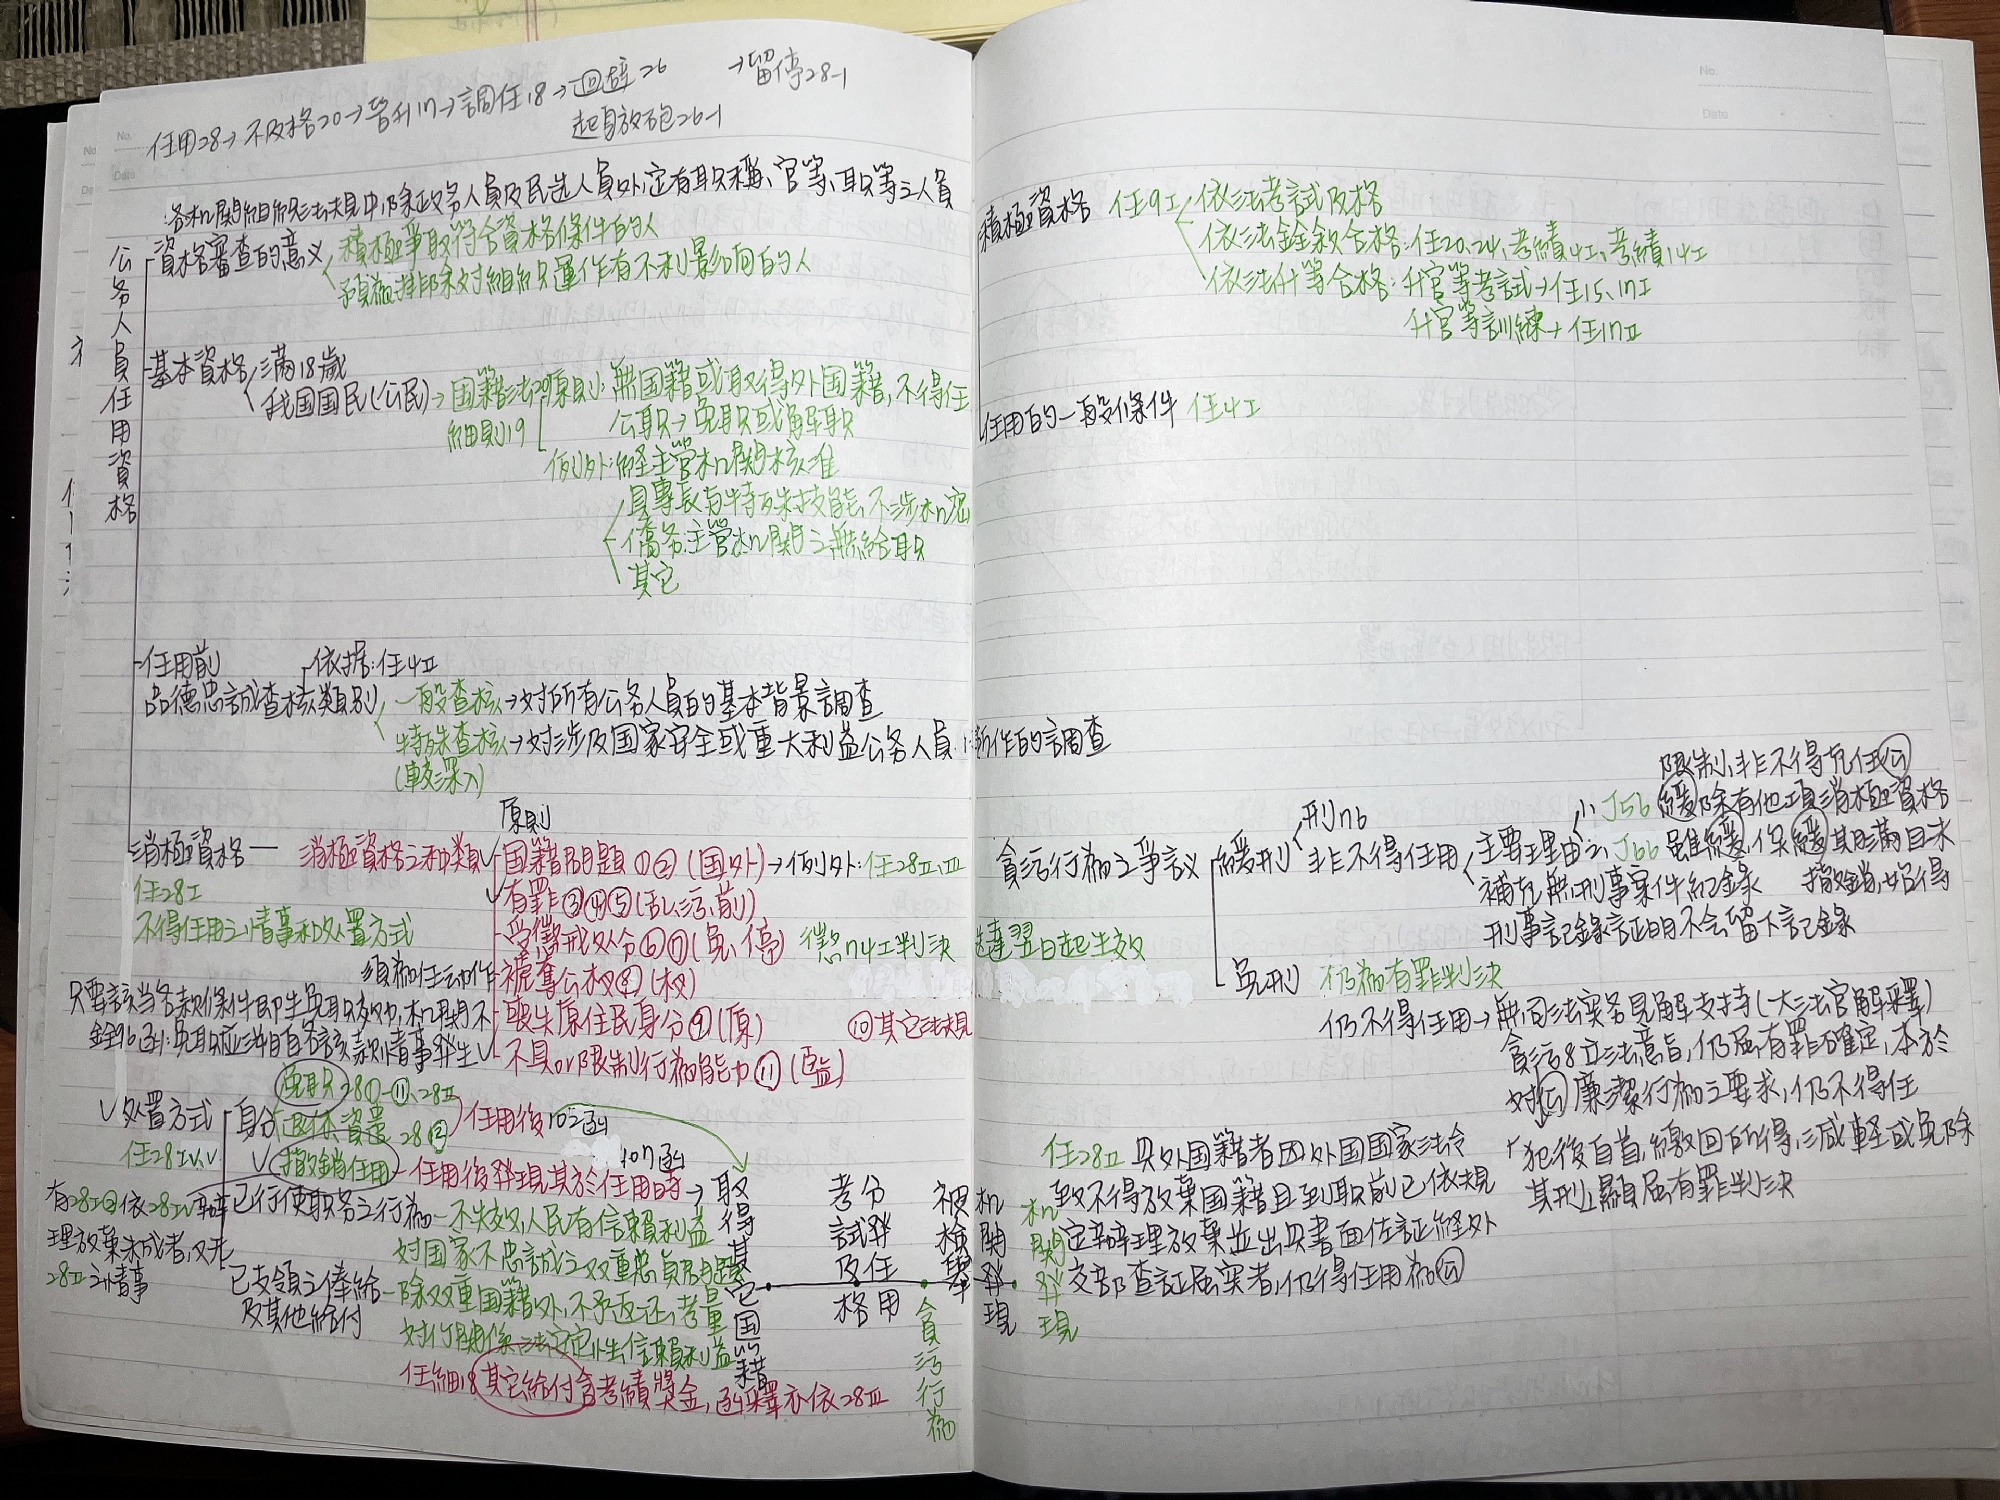 任用28→不及格20→晉升17→調任18→迴避26 →留停28-1
起自放砲26-1
:各机関組織法規中,除政务人員及民选人員外,定有职稱、官等、职等之人員
公务人員任用資格
資格審查的意义
積極爭取符合資格條件的人
預為排除对組織运作有不利影响的人
基本資格
满18歲
我国国民(公民)→国籍法20
細則19
原則:無国籍或取得外国籍,不得任
公职→免职或解职
例外:經主管机関核准
具專長或特殊技能,不涉机密
僑务主管机関之無給职
其它
任用前
品德忠誠查核類別
依据:任4Ⅱ
一般查核→对所有公务人員的基本背景調查
特殊查核→对涉及国家安全或重大利益公务人員所作的調查
(較深入)
消極資格
任28Ⅰ
不得任用之情事和处置方式
消極資格之种類
原則
国籍問題①②(国外)→例外:任28Ⅱ、Ⅲ
有罪③④⑤(乱、污、前)
受懲戒处分⑥⑦(免、停) 懲74Ⅰ判決送達翌日起生效
須為任动作
褫奪公权⑧(权)
喪失原住民身分⑨(原) ⑩其它法規
不具or限制行為能力⑪(監)
只要該当各款條件即生免职效力,机関不
銓96函:免职应溯自各該款情事發生
處置方式
任28Ⅳ、Ⅴ
身分
免职 28①-⑪、28Ⅱ
退休資遣 28②
任用後 105函
撤銷任用-任用後發現其於任用時→
107函
有28Ⅰ②依28Ⅳ再辦
理放棄未成者,又无
28Ⅱ之情事
已行使职务之行為-不失效,人民有信賴利益
对国家不忠誠之双重忠貞問題
已支領之俸給
及其他給付
除双重国籍外,不予返还,考量
对价関係之法定性信賴利益
任細18其它給付含考績獎金,函釋亦依28Ⅲ
取得其它国籍
考試及格
分發任用
貪污行為
被檢舉
机関發現
机関發現
積極資格 任9Ⅰ
依法考試及格
依法銓敘合格:任20、24、考績4Ⅰ、考績14Ⅰ
依法升等合格:升官等考試→任15、17Ⅰ
升官等訓練→任17Ⅱ
任用的一般條件 任4Ⅰ
貪污行為之爭议
緩刑
刑76
非不得任用
主要理由
1、J56 限制,非不得充任公
緩,除有他項消極資格
2、J66 雖緩,但緩其期滿且未
撤銷,始得
補充無刑事案件紀錄
刑事記錄証明不会留下記錄
免刑 仍為有罪判決
仍不得任用→無司法实务見解支持(大法官解釋)
貪污8立法意旨,仍屬有罪确定,本於
对公廉潔行為之要求,仍不得任
犯後自首,繳回所得,減輕或免除
其刑,顯屬有罪判決
任28Ⅱ 具外国籍者因外国国家法令
致不得放棄国籍且到职前已依規
定辦理放棄並出具書面佐証經外
交部查証屬实者,仍得任用為公